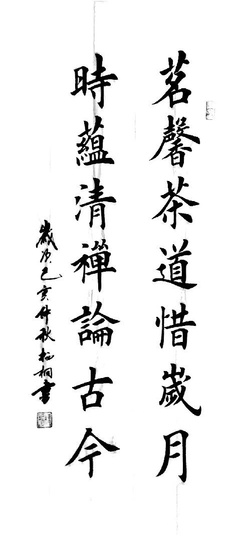 茗馨茶道惜歲月
時蘊清禪論古今
歲次己亥仲秋
書